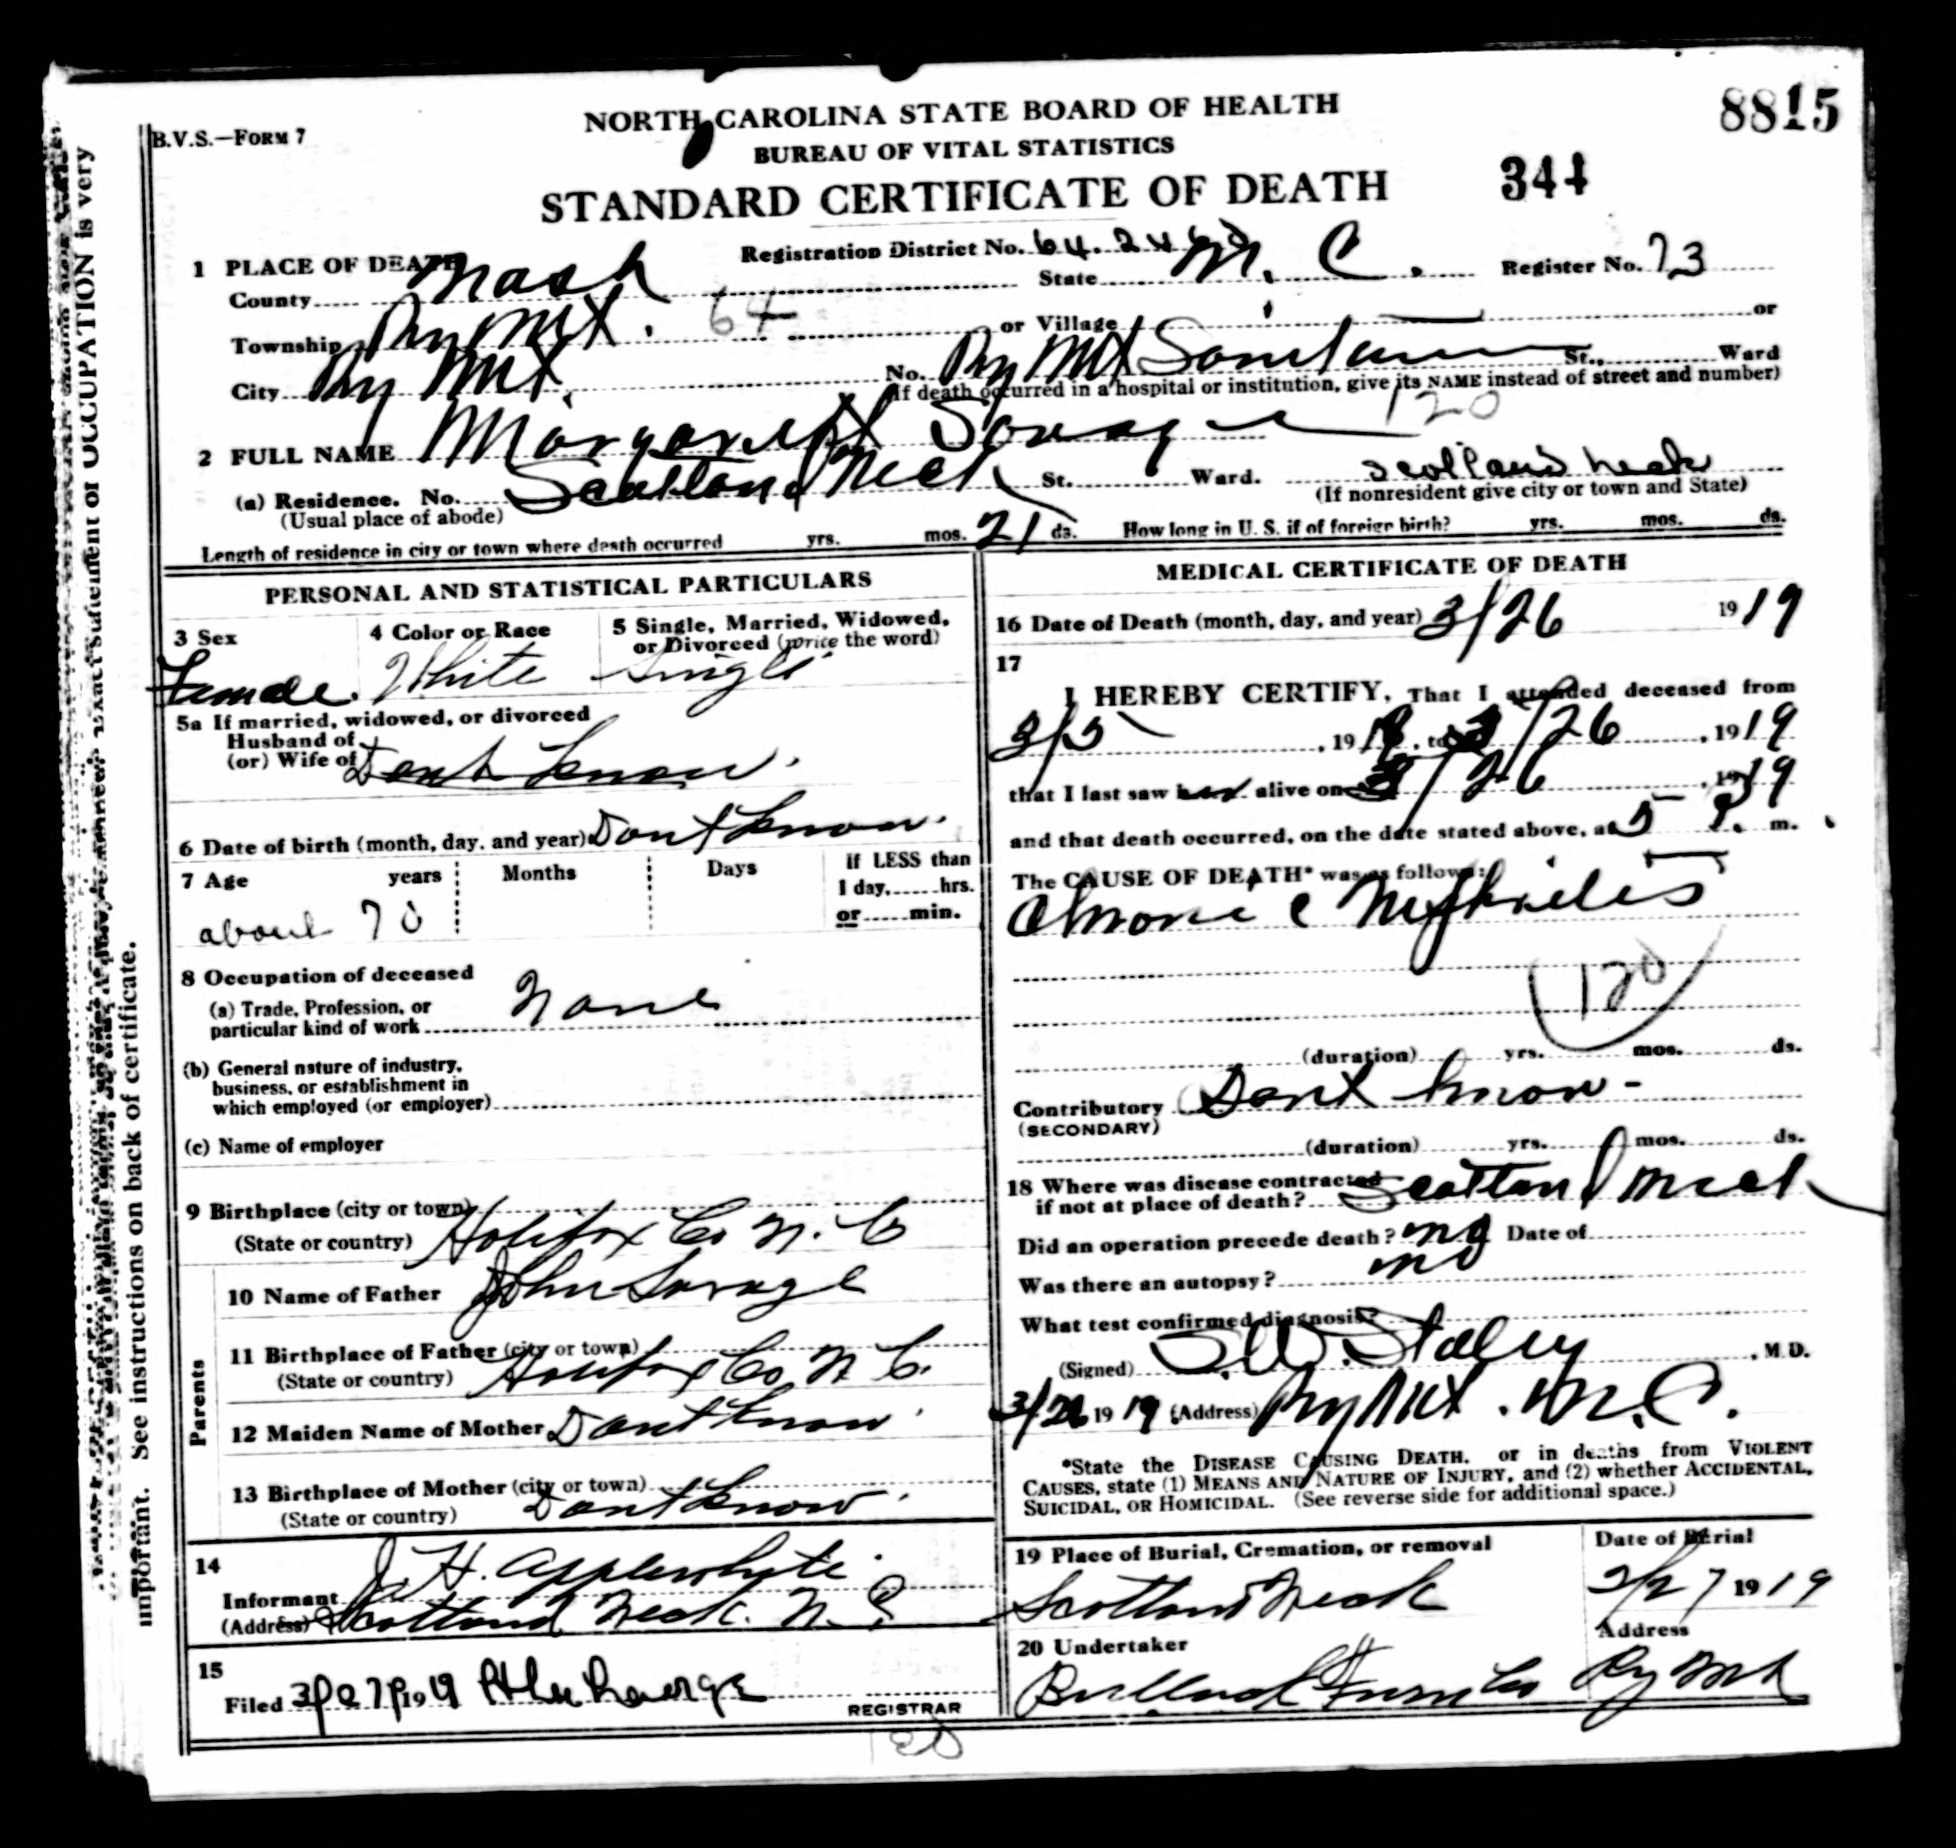 8815
B.V.S.—FORM 7
NORTH CAROLINA STATE BOARD OF HEALTH
BUREAU OF VITAL STATISTICS
STANDARD CERTIFICATE OF DEATH
344
1 PLACE OF DEATH Registration District No. 64.24
County Nash State N. C. Register No. 73
Township Ry Mt. 64 or Village or
City Ry Mt. No. Ry Mt Sanitarium St., Ward
(If death occurred in a hospital or institution, give its NAME instead of street and number)
120
2 FULL NAME Margarett Savage
(a) Residence. No. Scotland Neck St. Ward. Scotland neck
(Usual place of abode) (If nonresident give city or town and State)
Length of residence in city or town where death occurred yrs. mos. 21 ds. How long in U. S. if of foreign birth? yrs. mos. ds.
PERSONAL AND STATISTICAL PARTICULARS
3 Sex 4 Color or Race 5 Single, Married, Widowed, or Divorced (write the word)
Female. White Single
5a If married, widowed, or divorced
Husband of
(or) Wife of Dont Know.
6 Date of birth (month, day, and year) Dont Know.
7 Age years Months Days If LESS than
1 day, hrs.
or min.
about 70
8 Occupation of deceased
(a) Trade, Profession, or
particular kind of work None
(b) General nature of industry,
business, or establishment in
which employed (or employer)
(c) Name of employer
9 Birthplace (city or town)
(State or country) Halifax Co N. C
Parents
10 Name of Father John Savage
11 Birthplace of Father (city or town)
(State or country) Halifax Co N C.
12 Maiden Name of Mother Dont Know.
13 Birthplace of Mother (city or town)
(State or country) Dont Know.
14
Informant J. H. Applewhite.
(Address) Scotland Neck. N. C
15
Filed 3/27/1919
REGISTRAR
MEDICAL CERTIFICATE OF DEATH
16 Date of Death (month, day, and year) 3/26 1919
17
I HEREBY CERTIFY, That I attended deceased from
3/5, 1919, to 3/26, 1919
that I last saw her alive on 3/26, 1919
and that death occurred, on the date stated above, at 5 P. m.
The CAUSE OF DEATH* was as follows:
Chronic Nephritis
120
(duration) yrs. mos. ds.
Contributory Dont Know-
(SECONDARY)
(duration) yrs. mos. ds.
18 Where was disease contracted
if not at place of death? Scotland Neck
Did an operation precede death? no Date of
Was there an autopsy? no
What test confirmed diagnosis?
(Signed) Staley, M. D.
3/26 1919 (Address) Ry Mt. N. C.
*State the DISEASE CAUSING DEATH, or in deaths from VIOLENT
CAUSES, state (1) MEANS AND NATURE OF INJURY, and (2) whether ACCIDENTAL,
SUICIDAL, OR HOMICIDAL. (See reverse side for additional space.)
19 Place of Burial, Cremation, or removal Date of Burial
Scotland Neck 3/27 1919
20 Undertaker Address
Bullock Furn Co Ry Mt
OCCUPATION is very
important. See instructions on back of certificate.